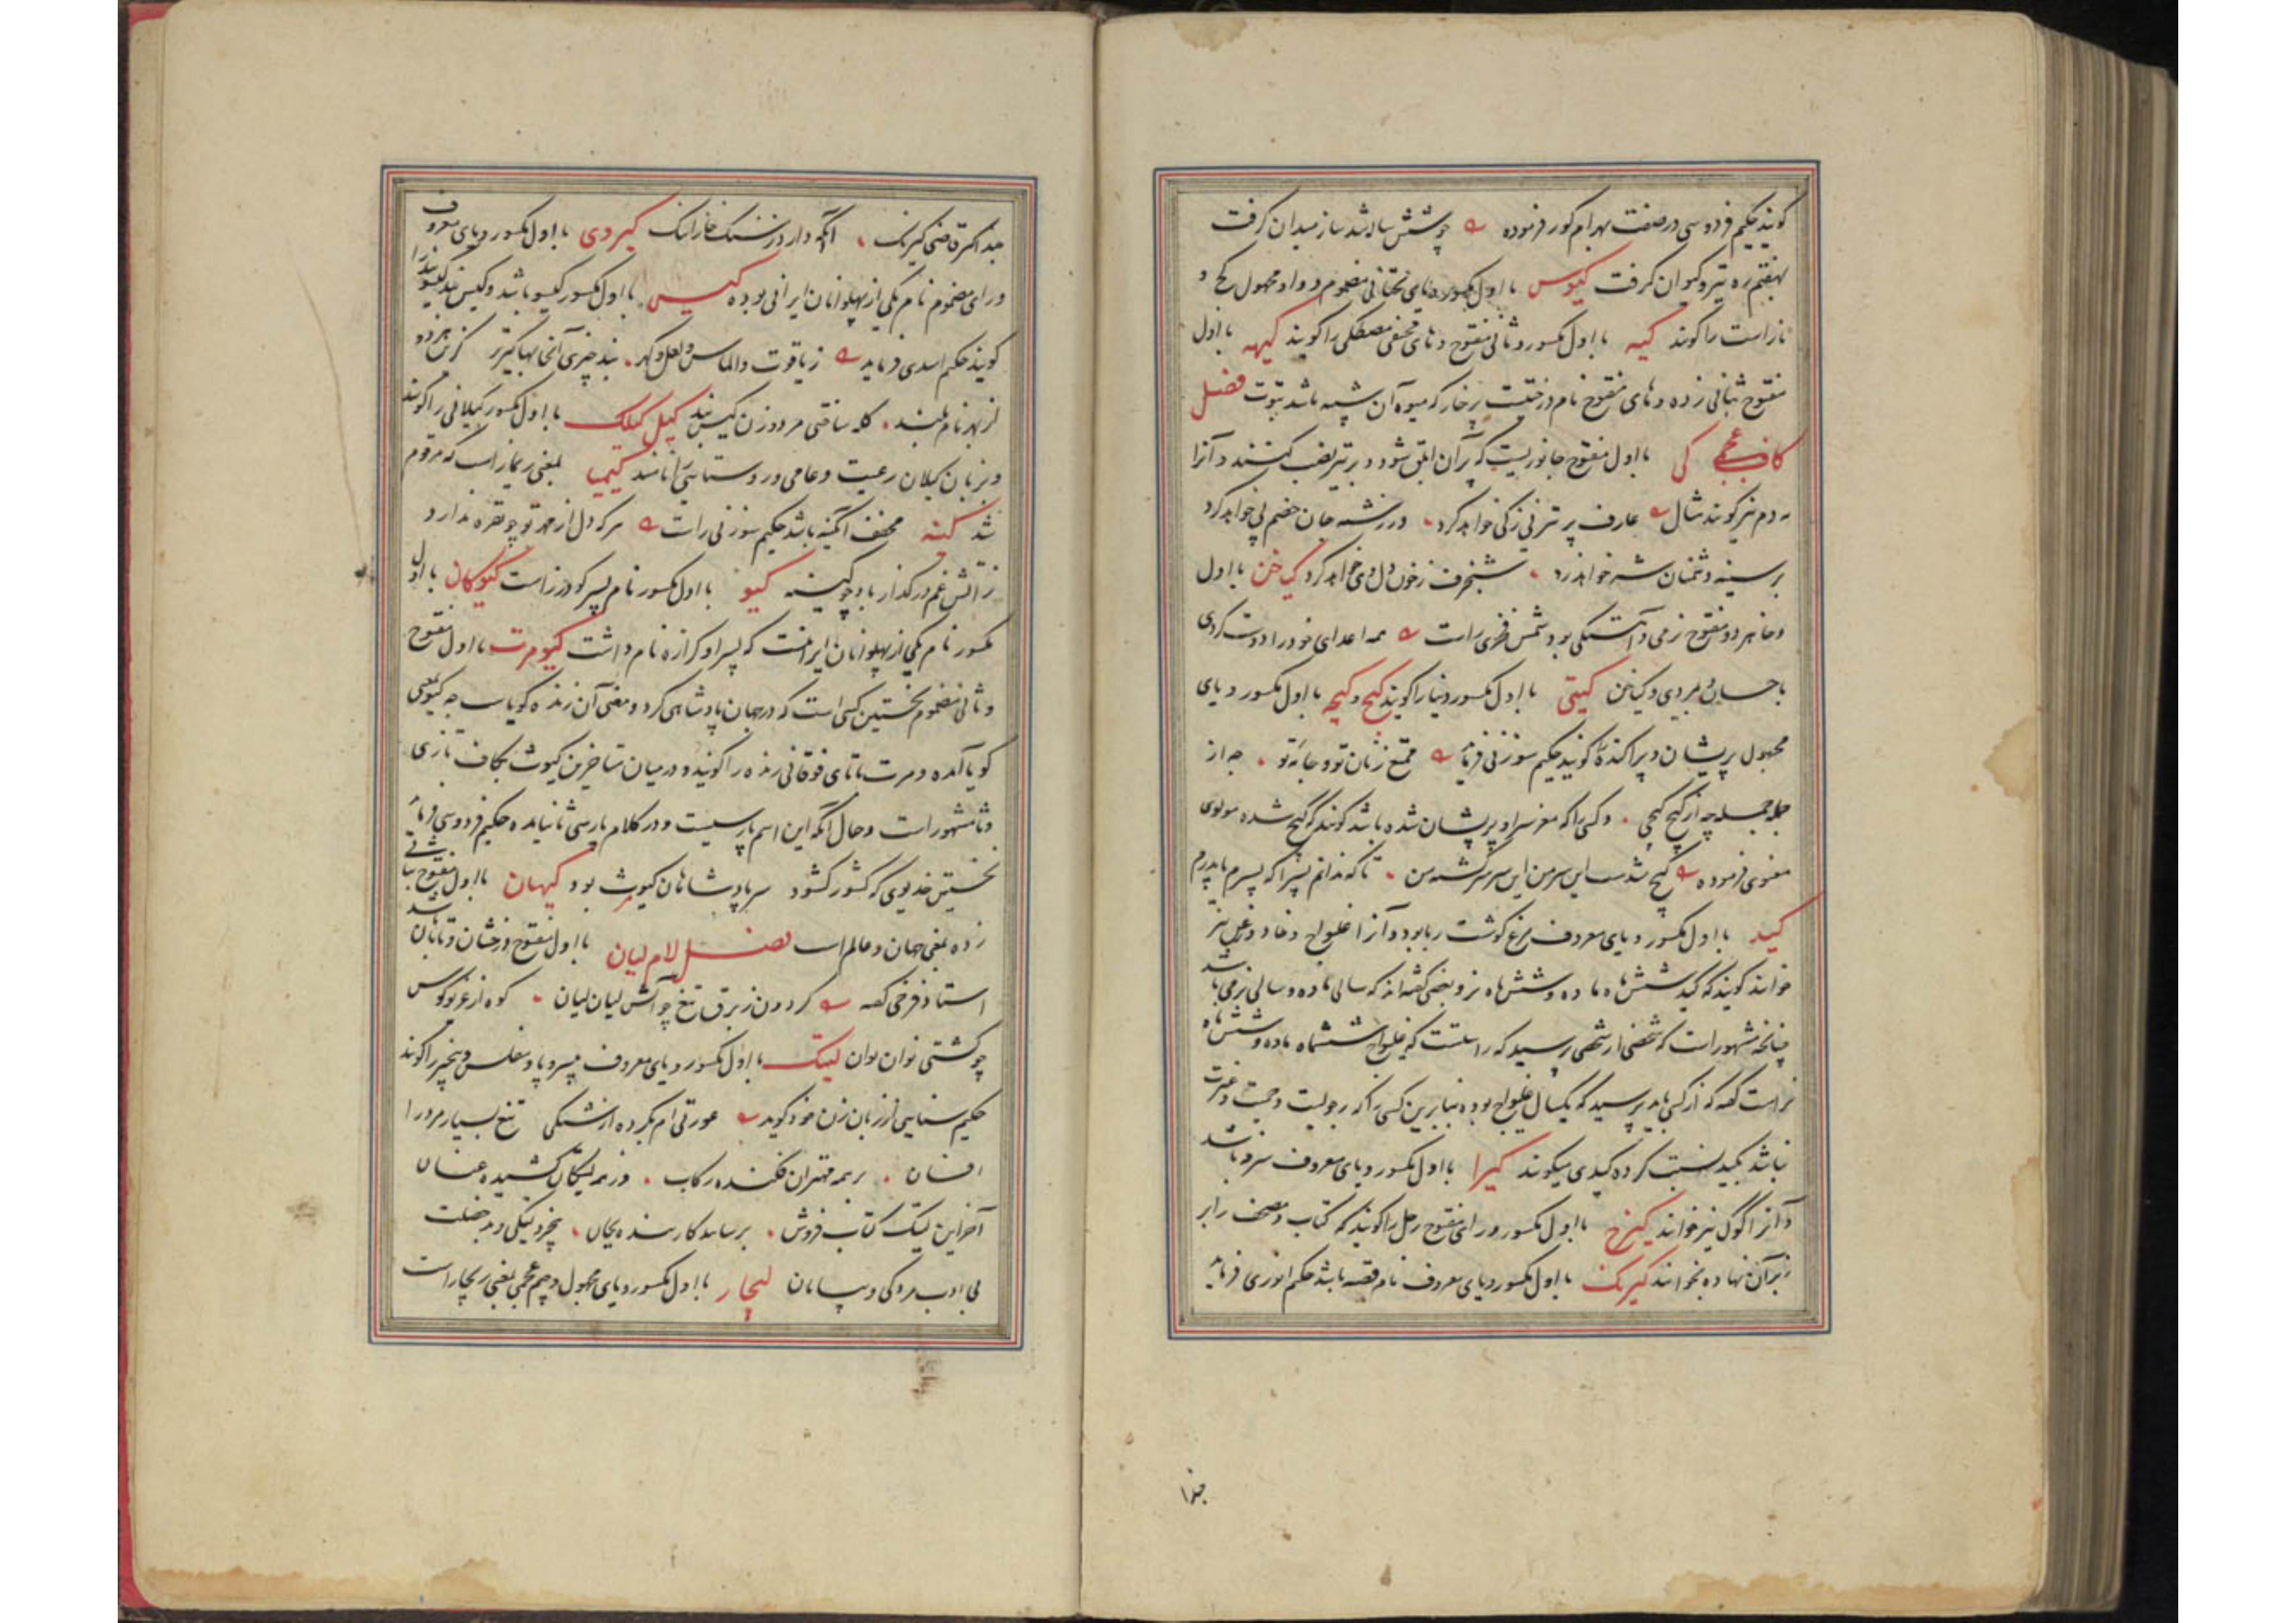 کویند حکیم فردوسی در صفت بهرام کور فرموده چو شش ساله شد ساز میدان کرفت
بهفتم ره تیر و کیوان کرفت کیوس با اول مکسور و یای تحتانی مضموم و واو مجهول کج و
ناراست را کویند کیه با اول مکسور و ثانی مفتوح و های مخفی مصطکی را کویند کیهه با اول
مفتوح بثانی زده و های مفتوح نام درختیست پرخار که میوه آن شبیه باشد بتوت فصل
کاف عجمی کی با اول مفتوح جانوریست که پر آن ابلق شود و بر تیر نصب کنند و آنرا
دم نیز کویند مثال عارف پر تیر نی زکی خواهد کرد در رشته جان خصم پی خواهد کرد
بر سینه دشمنان شه خواهد زد شنجرف زخون دل وی خواهد کرد کیاخن با اول
و خا هر دو مفتوح نرمی و آهستکی بود شمس فخری راست همه اعدای خود را دوست کردی
با حسان و بمردی و کیاخن کیتی با اول مکسور دنیا را کویند کیج و کیجه با اول مکسور و یای
مجهول پریشان و پراکنده را کویند حکیم سوزنی فرماید مجمع زنان تو و جانه تو چه از
جمله چه از کیج کیجی و کسی را که مغز سر او پریشان شده باشد کویند که کیج شده مولوی
معنوی فرموده کیج شدست این سر من این سر سرکشته من تا که ندانم پسرا که پسرم یا پدرم
کید با اول مکسور و یای معروف مرغ کوشت ربا بود و آنرا غلیواج و خاد و زغن نیز
خوانند کویند که کید شش ماه ماده و شش ماه نر و بعضی کفته اند که سالی ماده و سالی نر می باشد
چنانچه مشهور است که شخصی از شخصی پرسید که راستست که غلیواج ششماه ماده و شش ماه
نر است کفت که از کسی باید پرسید که یکسال غلیواج بوده بنابرین کسی را که رجولیت و حمیت و غیرت
نباشد بکید نسبت کرده کیدی میکویند کیرا با اول مکسور و یای معروف سرفه باشد
و آنرا کول نیز خوانند کیرخ با اول مکسور و رای مفتوح رحل را کویند که کتاب و مصحف را بر
زبر آن نهاده بخوانند کیرنک با اول مکسور و یای معروف نام قصبه باشد حکیم انوری فرماید
جذا
جذا کمرقاضی کیرنک آنکه دارد زسنک خارا ننک کیردی با اول مکسور و یای معروف
و رای مضموم نام یکی از پهلوانان ایرانی بوده کیس با اول مکسور کیسو باشد و کیس بند کیسو بند را
کویند حکیم اسدی فرماید زیاقوت والماس و لعل و کهر بند چیزی آنجا بها کیرتر
از بهر نام بلند کله ساختی مرد و زن کیس بند کیل کیلک با اول مکسور کیلانی را کویند
و بزبان کیلان رعیت و عامی و روستایی را نامند کیمیا بمعنی ریماز است که مرقوم
شد کینه مخفف آبکینه باشد حکیم سوزنی راست هر که دل از مهر تو چو نقره ندارد
ز آتش غم در کداز باد چو کینه کیو با اول مکسور نام پسر کودرز است کیوکان با اول
مکسور نام یکی از پهلوانان ایرانست که پسر او کرازه نام داشت کیومرت با اول مفتوح
و ثانی مضموم نخستین کسی است که در جهان پادشاهی کرد و معنی آن زنده کویاست چه کیو بمعنی
کویا آمده و مرت با تای فوقانی زنده را کویند و در میان متاخرین کیومرث بکاف تازی
و ثا مشهور است و حال آنکه این اسم پارسیست و در کلام پارسی ثا نیامده حکیم فردوسی فرماید
نخستین خدیوی که کشور کشود سر پادشاهان کیومرث بود کیهان با اول مفتوح بثانی
زده بمعنی جهان و عالم است فصل لام لیان با اول مفتوح درخشان و تابان باشد
استاد فرخی کفته کردون ز برق تیغ چو آتش لیان لیان کوه از غریو کوس
چو کشتی نوان نوان لیتک با اول مکسور و یای معروف بیسر و پا و مفلس و بیخبر را کویند
حکیم سنایی از زبان زن خود کوید عورتی ام بکرده از تنکی تیغ بسیار مرد را
افسان بر همه مهتران فکنده رکاب وز همه لیتکان کشیده عنان
آخر این لیتک کتاب فروش برساند کار بنده بجان بیخرد لیتکی و بد خصلت
بی ادب مردکی و بیسامان لیچار با اول مکسور و یای مجهول و جیم عجمی بمعنی ریچار است